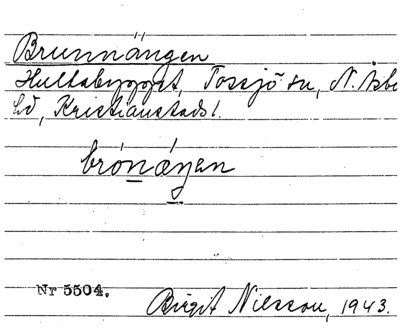 Brunnängen
Hultabygget, Tossjö sn, N. Åsbo
hd, Kristianstads l.
brónǽŋen
Nr 5504.
Birgit Nilsson, 1943.